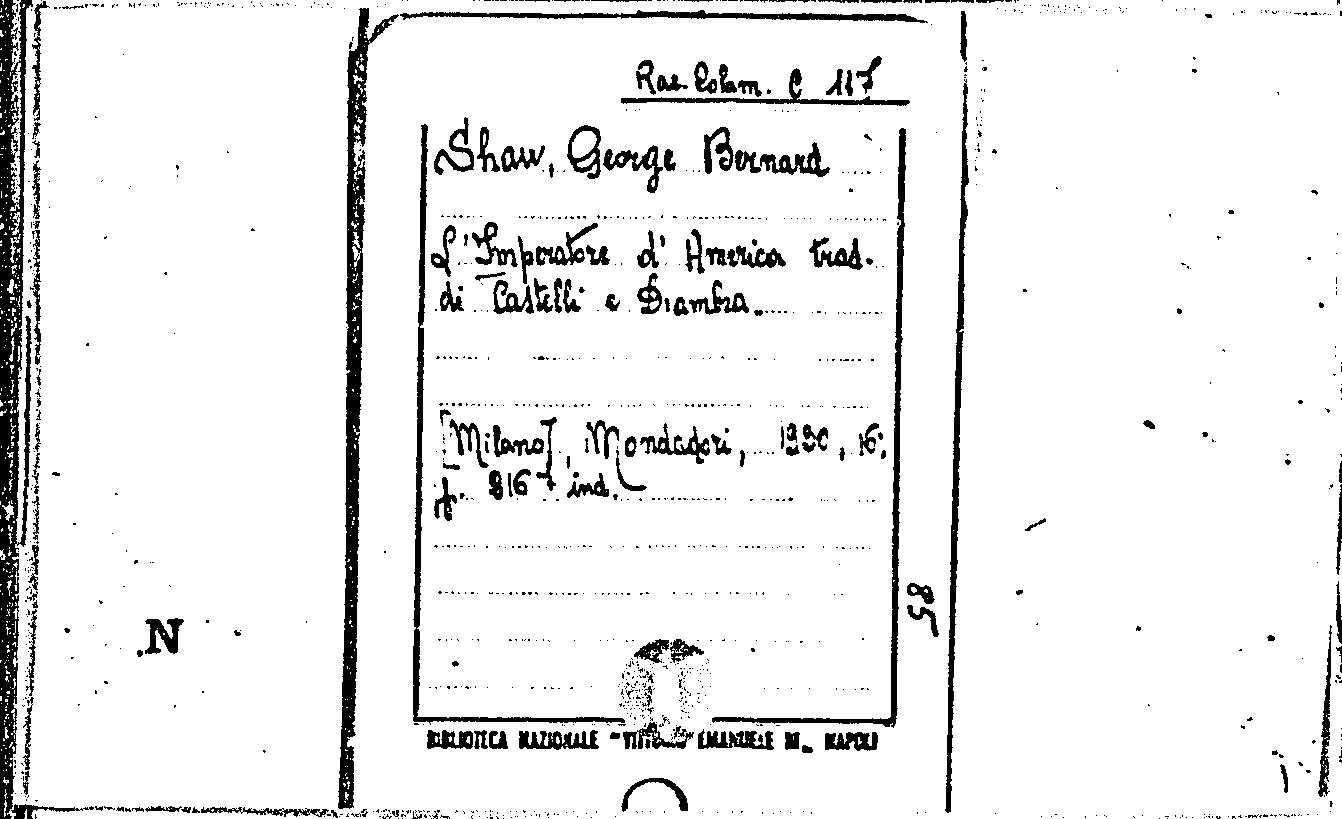 Rac. Colam. C 117
Shaw, George Bernard
L'Imperatore d'America trad.
di Castelli e Diambra.
[Milano], Mondadori, 1930, 16;
p. 316 + ind.
85
N
BIBLIOTECA NAZIONALE "VITTORIO EMANUELE III„ NAPOLI